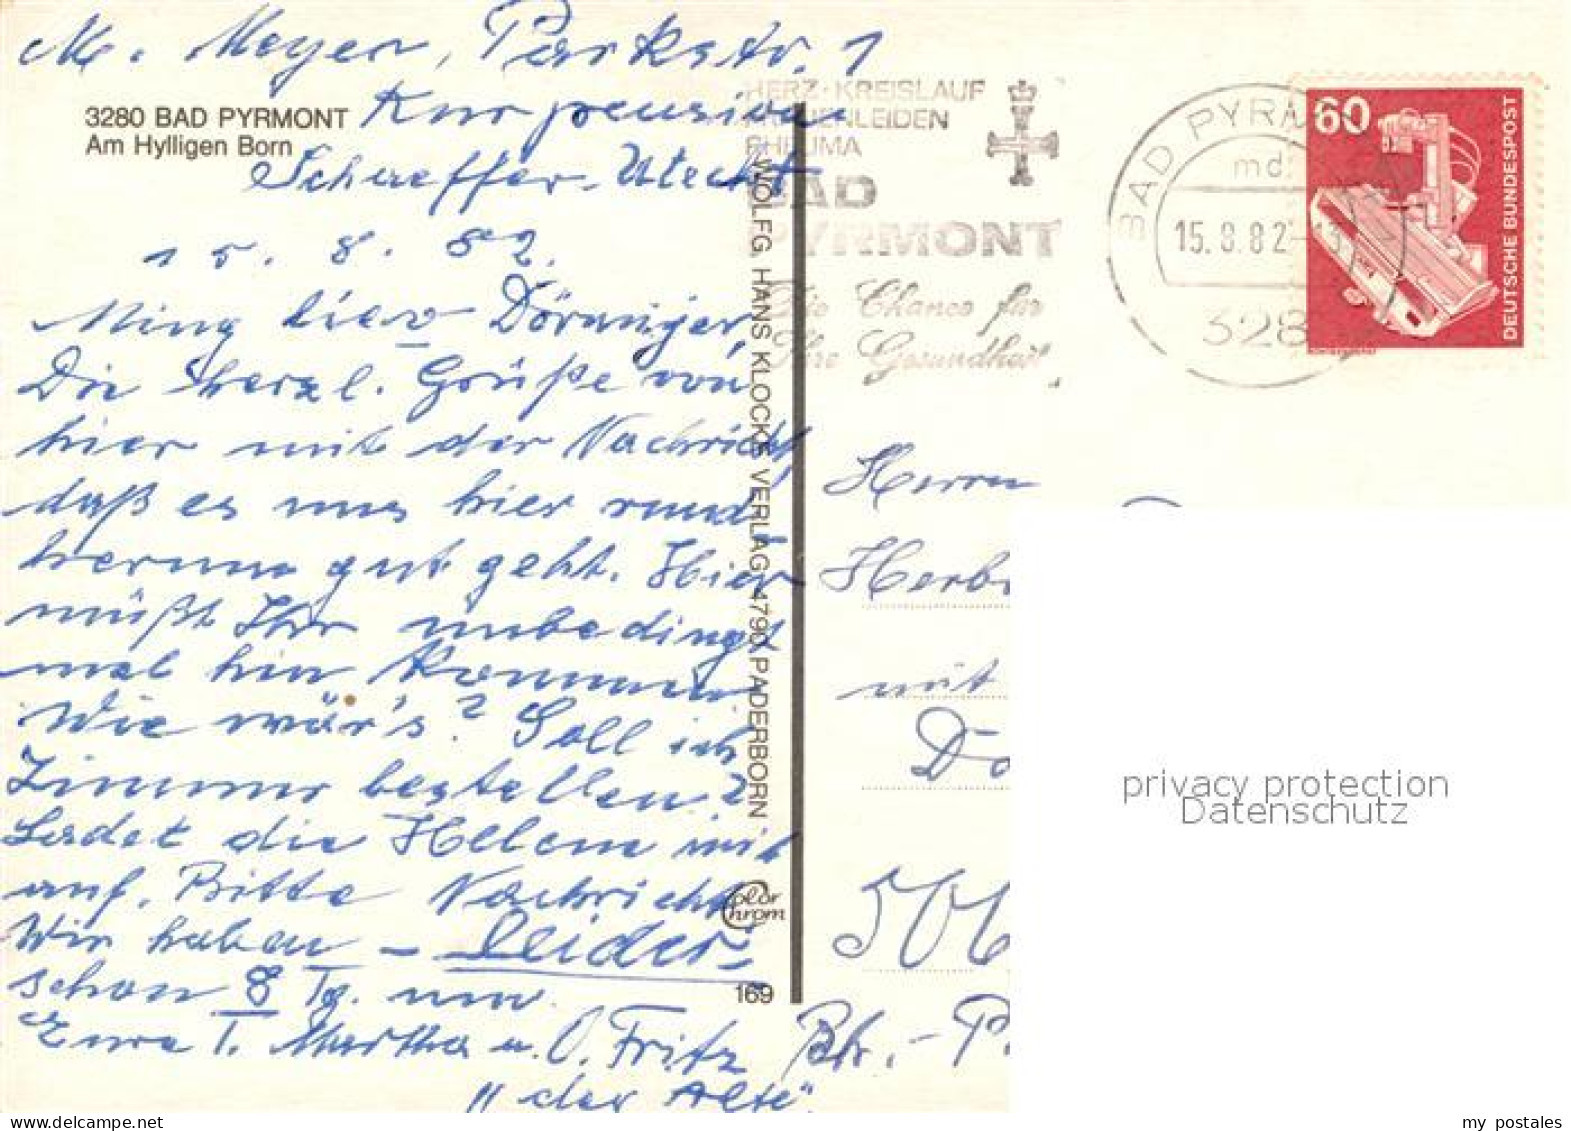 M. Meyer, Parkstr. 1
3280 BAD PYRMONT
Am Hylligen Born
Kurpension
Schaeffer-Utecht
15. 8. 82.
Ming liev Dörninger,
Die herzl. Grüße von
hier mit der Nachricht,
daß es uns hier rund-
herum gut geht. Hier
müßt Ihr unbedingt
mal hin kommen
Wie wär's? Soll ich
Zimmer bestellen?
Ladet die Helene mit
auf. Bitte Nachricht
Wir haben – leider –
schon 8 Tg. um
Eure T. Martha u. O. Fritz
"der Alte"
WOLFG. HANS KLOCKE VERLAG 4790 PADERBORN
Color
Chrom
169
HERZ·KREISLAUF
RHEUMA
BAD
PYRMONT
Die Chance für
Ihre Gesundheit
BAD PYRM
md
15.8.82-13
328
60
DEUTSCHE BUNDESPOST
Herrn
Herb
mit
Dö
506
Bhr.-P
privacy protection
Datenschutz
my postales